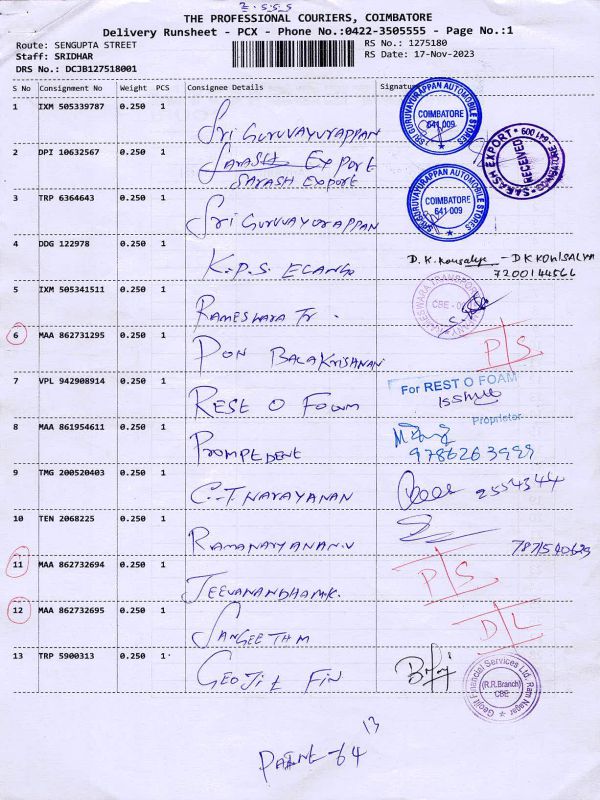 THE PROFESSIONAL COURIERS, COIMBATORE
Delivery Runsheet - PCX - Phone No.:0422-3505555 - Page No.:1
Route: SENGUPTA STREET RS No.: 1275180
Staff: SRIDHAR RS Date: 17-Nov-2023
DRS No.: DCJB127518001
S No Consignment No Weight PCS Consignee Details Signature
1 IXM 505339787 0.250 1 Sri Guruvayurappan
SRI GURUVAYURAPPAN AUTOMOBILE STORES COIMBATORE 641 009
2 DPI 10632567 0.250 1 Sarash Export
Sarash Export
SARASH EXPORT RECEIVED COIMBATORE - 641 009
3 TRP 6364643 0.250 1 Sri Guruvayurappan
SRI GURUVAYURAPPAN AUTOMOBILE STORES COIMBATORE 641 009
4 DDG 122978 0.250 1 K.P.S. Elango D.K. Kousalya - DK KOUSALYA
7200144566
5 IXM 505341511 0.250 1 Rameswara Tr.
CBE
6 MAA 862731295 0.250 1 Pon Balakrishnan P/S
7 VPL 942908914 0.250 1 Rest O Foam For REST O FOAM
Proprietor
8 MAA 861954611 0.250 1 Promptdent
9786263999
9 TMG 200520403 0.250 1 C.T. Narayanan 2554344
10 TEN 2068225 0.250 1 Ramanarayanan.V
11 MAA 862732694 0.250 1 Jeevanandham.K. P/S
12 MAA 862732695 0.250 1 Sangeeth M D/L
13 TRP 5900313 0.250 1 Geojit Fin
Geojit Financial Services Ltd. Ram Nagar (R.R.Branch) CBE
13
64